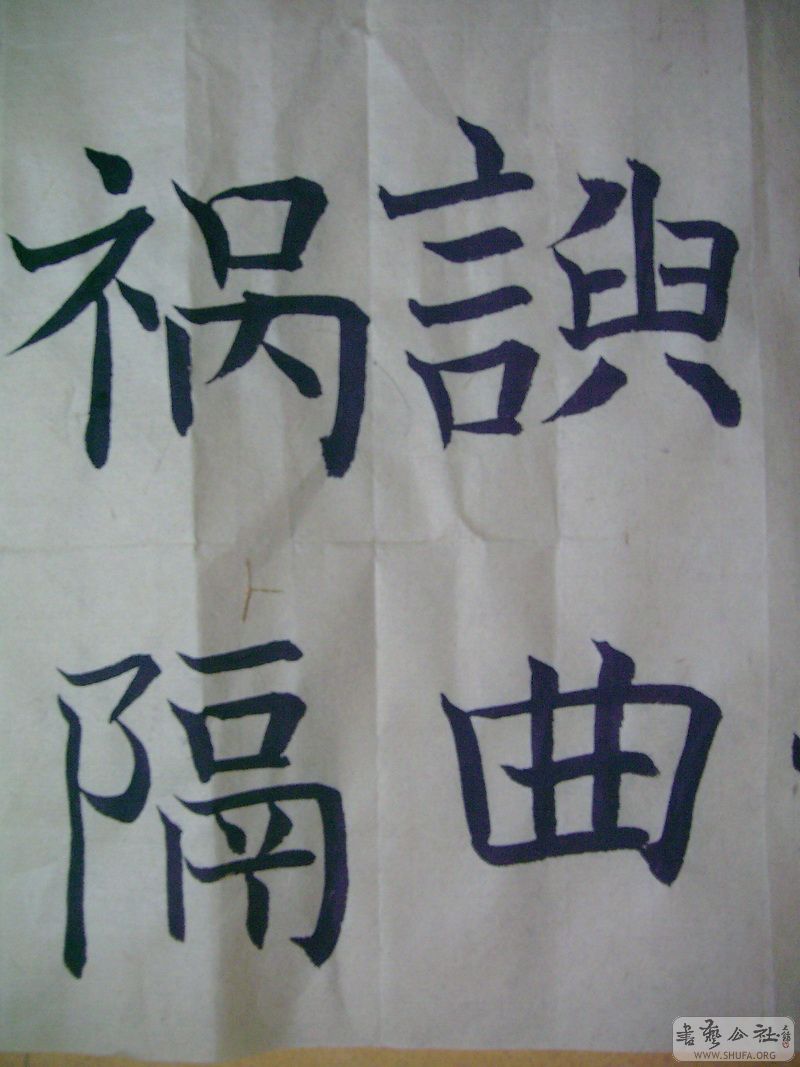 諛曲
祸隔
書藝公社
WWW.SHUFA.ORG